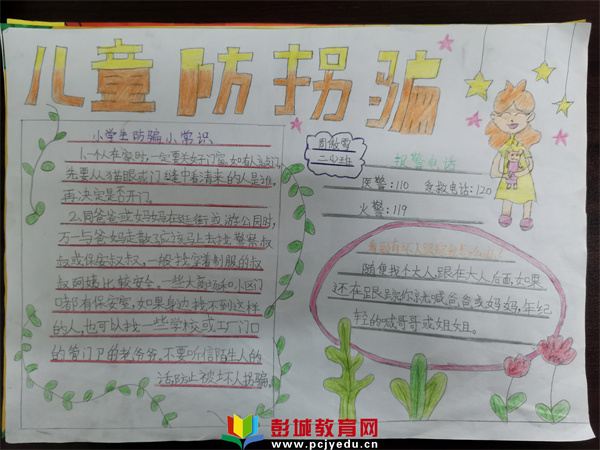 儿童防拐骗
小学生防骗小常识
1.一个人在家时,一定要关好门窗,如有人敲门,
先要从猫眼或门缝中看清来的人是谁,
再决定是否开门。
2.同爸爸或妈妈在逛街或游公园时,
万一与爸妈走散,应该马上去找警察叔
叔或保安叔叔,一般找穿着制服的叔
叔阿姨比较安全,一些大商场和小区门
口都有保安室,如果身边找不到这样
的人,也可以找一些学校或工厂门口
的管门卫的老爷爷,不要听信陌生人的
话,防止被坏人拐骗。
二(2)班
报警电话
医警:110 急救电话:120
火警:119
随便找个大人,跟在大人后面,如果
还在跟踪你就喊爸爸或妈妈,年纪
轻的喊哥哥或姐姐。
彭城教育网
www.pcjyedu.cn